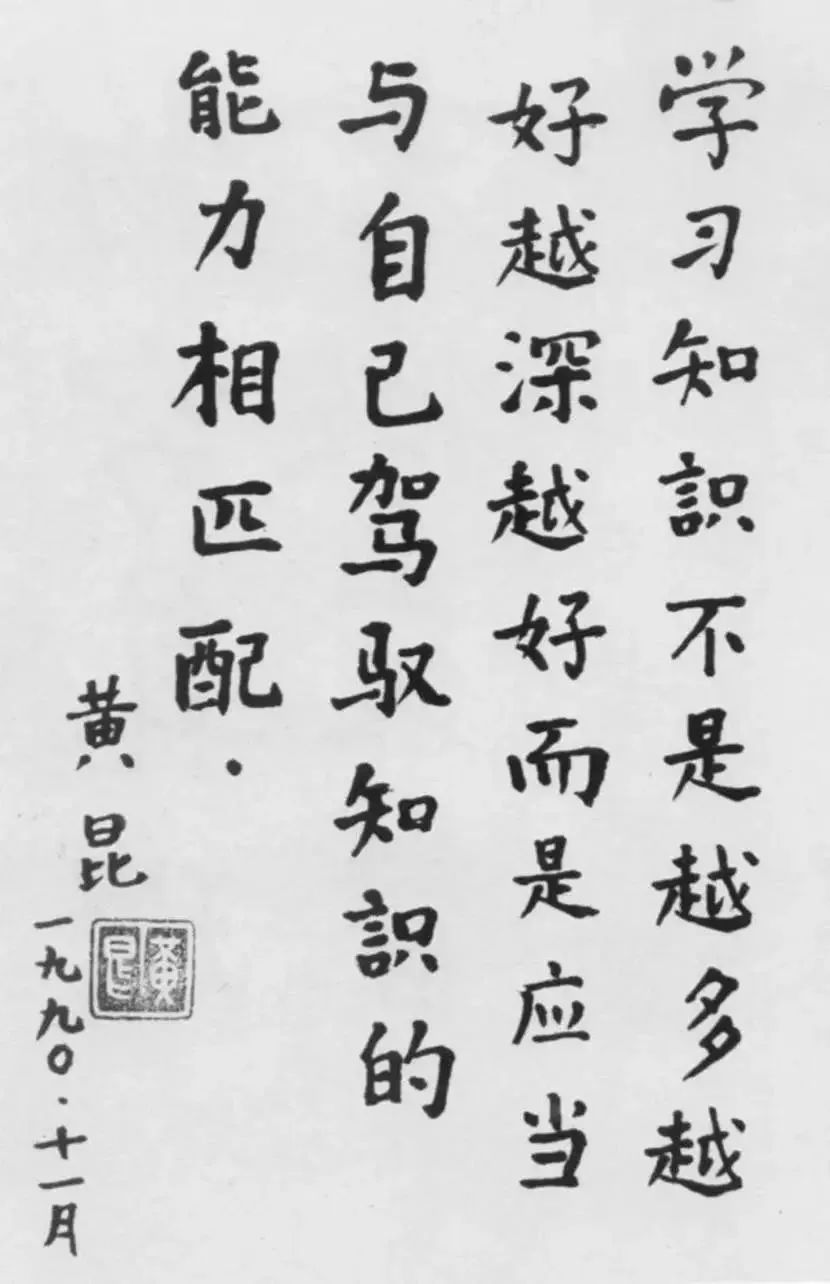 学习知訳不是越多越
好越深越好而是应当
与自己驾驭知訳的
能力相匹配.
黄昆
一九九〇.十一月
黄昆